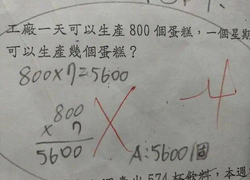 工廠一天可以生產 800 個蛋糕，一個星期
可以生產幾個蛋糕？
800×7=5600
800
× 7
5600
A：5600個
-4
574 杯飲料，本週